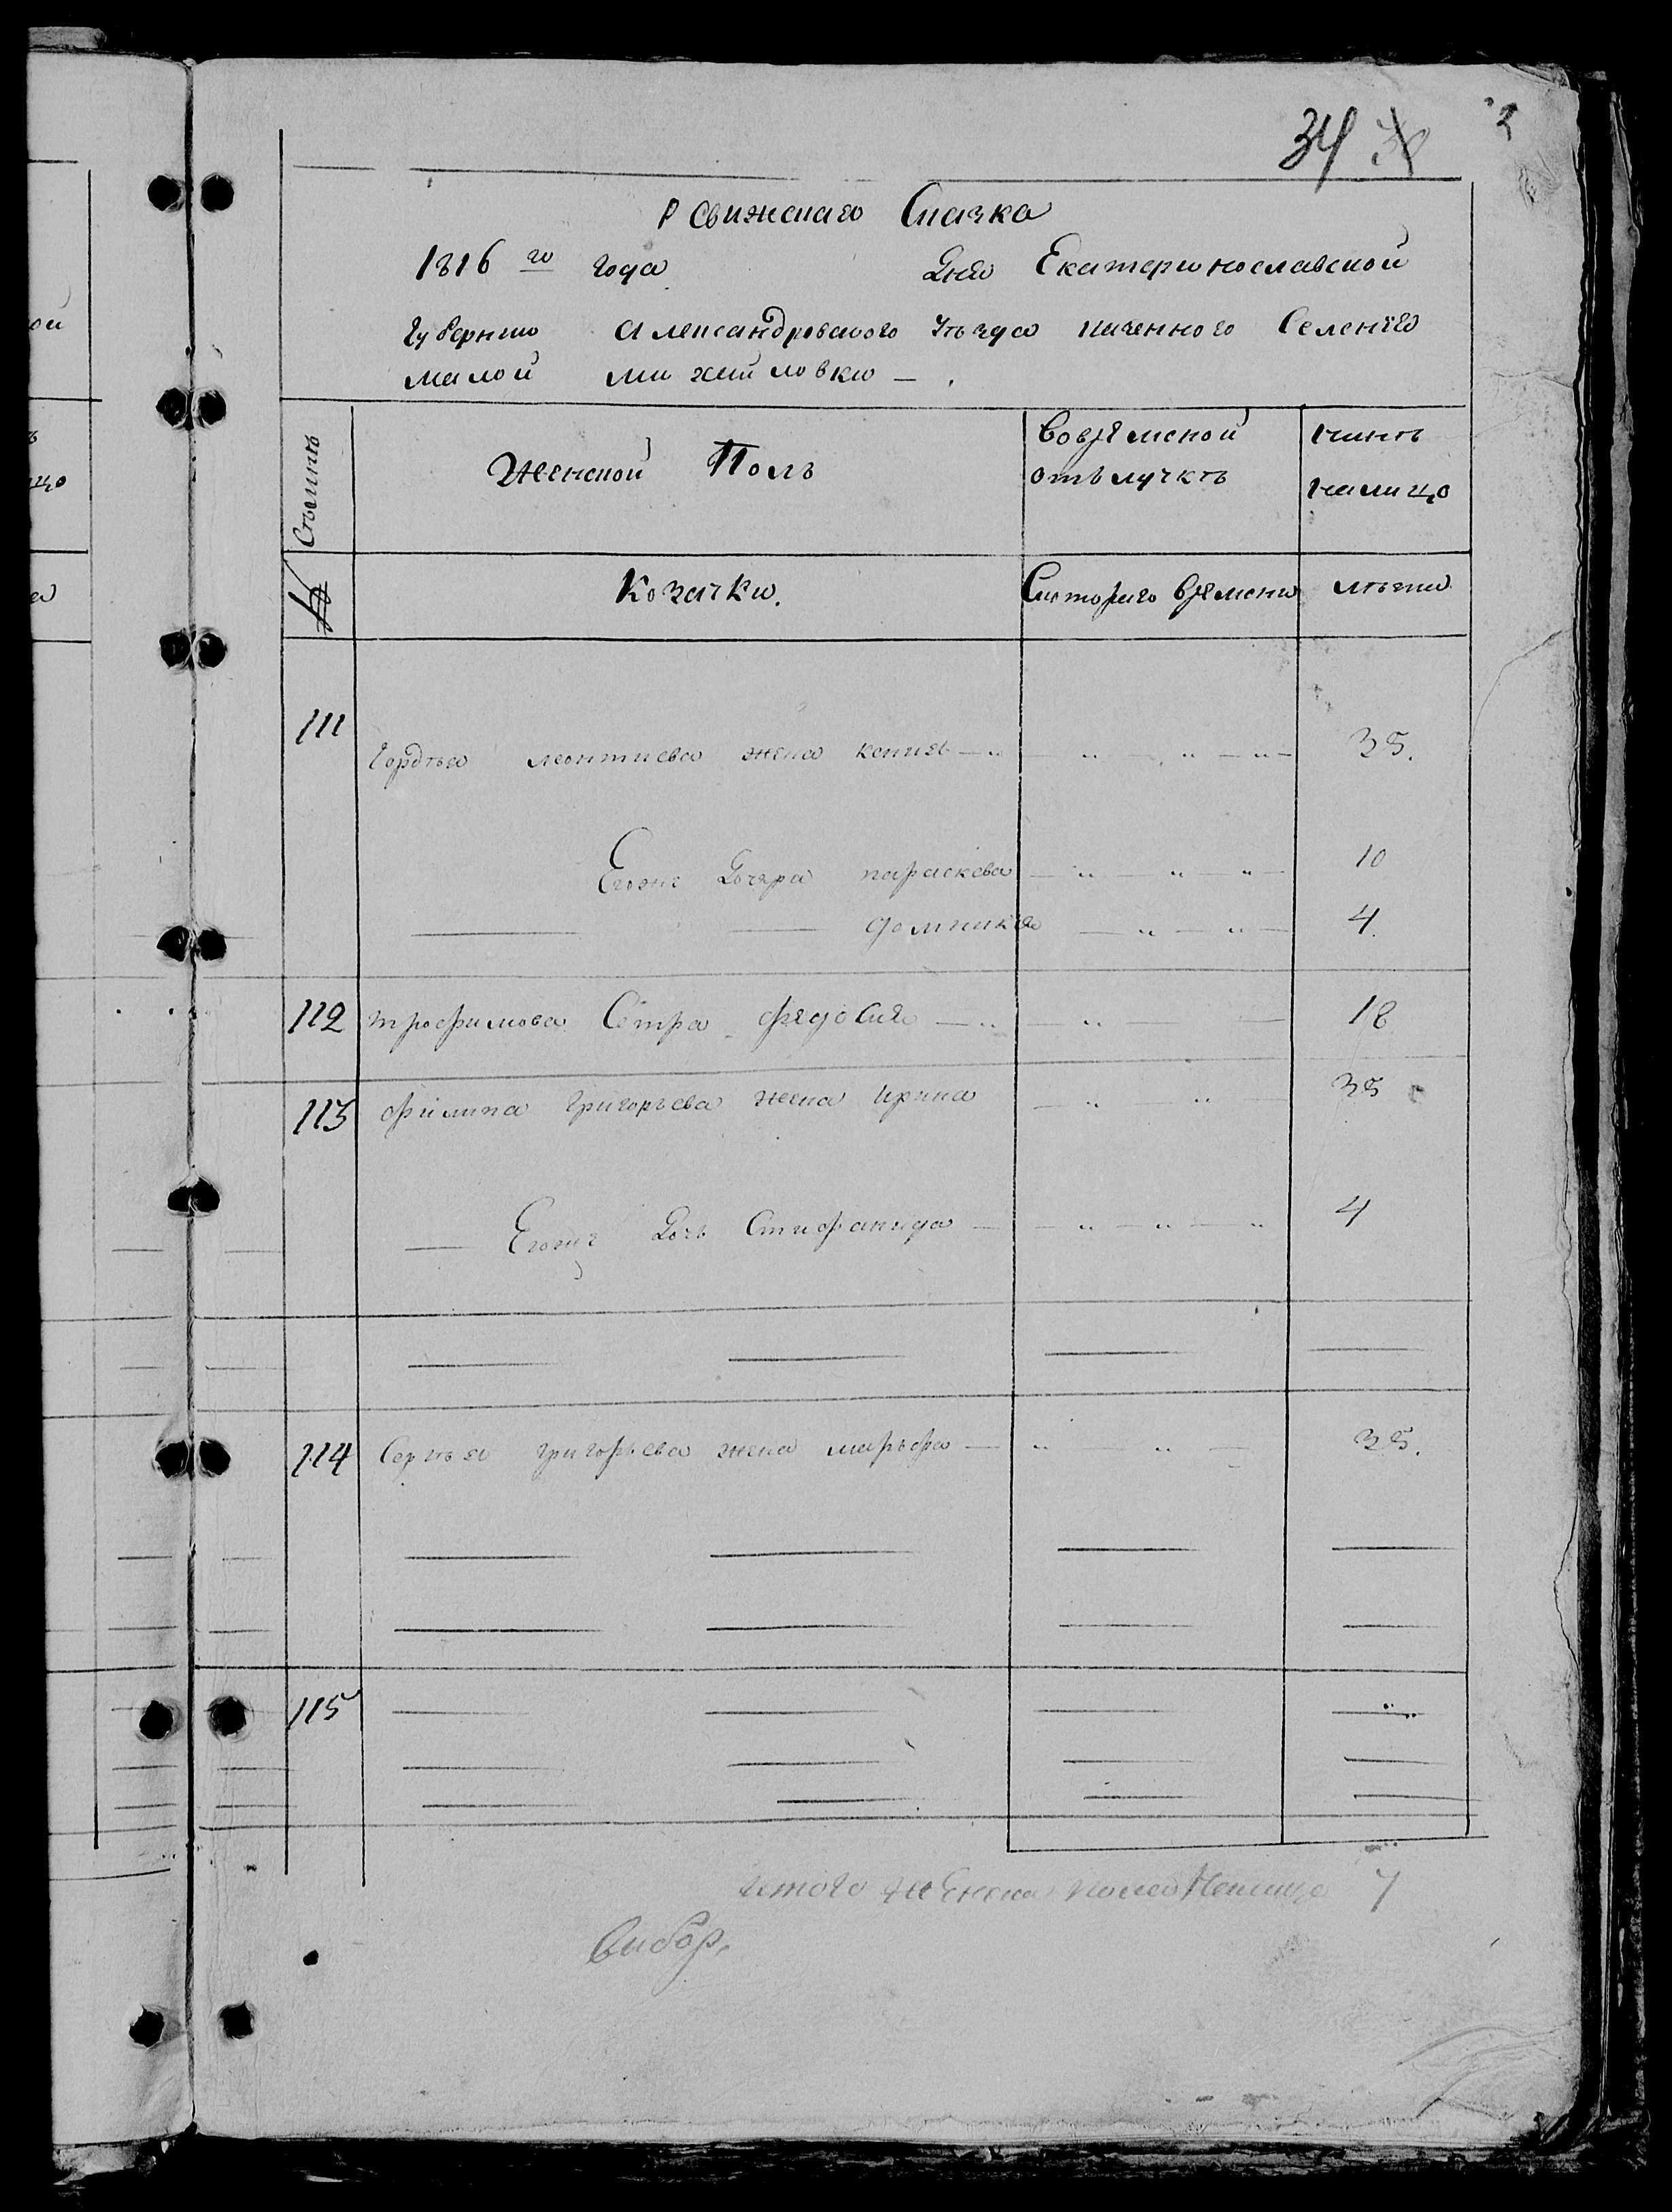 34
Ревижская Сказка
1816 го года Дня Екатеринославской
Губернии Александровского Уѣзда казенного Селенія
малой михайловки
Семьи
Женской Полъ
Вовремѣнной отълучкѣ
Нынѣ налицо
№
Козачки.
Скоторого времени
лѣты
111
Гордѣя леонтиева жена ксенія 35.
Егоже Дочера параскева 10
домникія 4.
112 трофимова Сестра федосия 18
113 филипа григорьева жена ирина 35
Егоже Дочь Стифанида 4
114 Сергѣя григорьева жена марьфа 35.
115
итого женска пола налицо 7